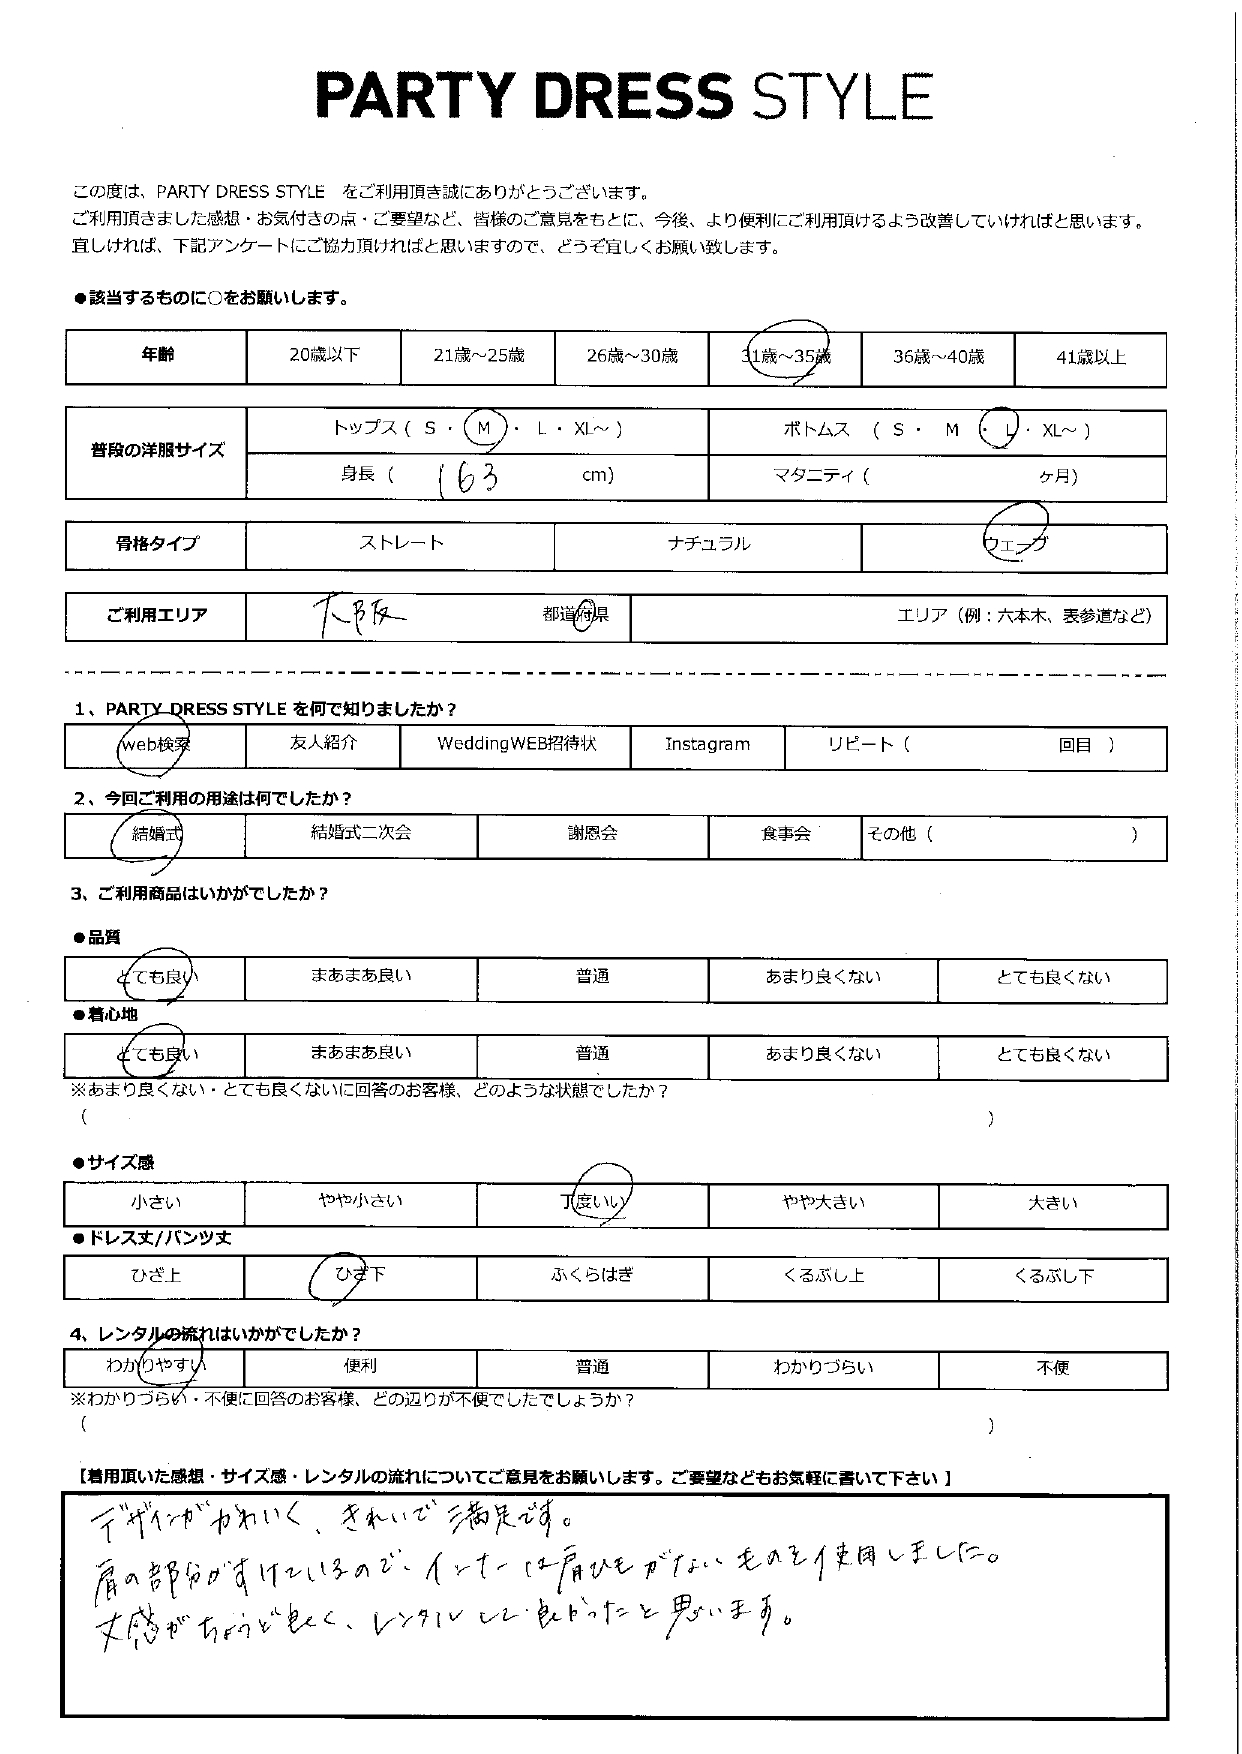 PARTY DRESS STYLE
この度は、PARTY DRESS STYLE をご利用頂き誠にありがとうございます。
ご利用頂きました感想・お気付きの点・ご要望など、皆様のご意見をもとに、今後、より便利にご利用頂けるよう改善していければと思います。
宜しければ、下記アンケートにご協力頂ければと思いますので、どうぞ宜しくお願い致します。
●該当するものに○をお願いします。
年齢 20歳以下 21歳～25歳 26歳～30歳 31歳～35歳 36歳～40歳 41歳以上
普段の洋服サイズ トップス ( S ・ M ・ L ・ XL～ ) ボトムス ( S ・ M ・ L ・ XL～ )
身長 ( 163 cm) マタニティ ( ヶ月)
骨格タイプ ストレート ナチュラル ウェーブ
ご利用エリア 大阪 都道府県 エリア（例：六本木、表参道など）
1、PARTY DRESS STYLE を何で知りましたか？
web検索 友人紹介 WeddingWEB招待状 Instagram リピート ( 回目 )
2、今回ご利用の用途は何でしたか？
結婚式 結婚式二次会 謝恩会 食事会 その他 ( )
3、ご利用商品はいかがでしたか？
●品質
とても良い まあまあ良い 普通 あまり良くない とても良くない
●着心地
とても良い まあまあ良い 普通 あまり良くない とても良くない
※あまり良くない・とても良くないに回答のお客様、どのような状態でしたか？
( )
●サイズ感
小さい やや小さい 丁度いい やや大きい 大きい
●ドレス丈/パンツ丈
ひざ上 ひざ下 ふくらはぎ くるぶし上 くるぶし下
4、レンタルの流れはいかがでしたか？
わかりやすい 便利 普通 わかりづらい 不便
※わかりづらい・不便に回答のお客様、どの辺りが不便でしたでしょうか？
( )
【着用頂いた感想・サイズ感・レンタルの流れについてご意見をお願いします。ご要望などもお気軽に書いて下さい 】
デザインがかわいく、きれいで満足です。
肩の部分がすけているので、インナーは肩ひもがないものを使用しました。
丈感がちょうど良く、レンタルして良かったと思います。